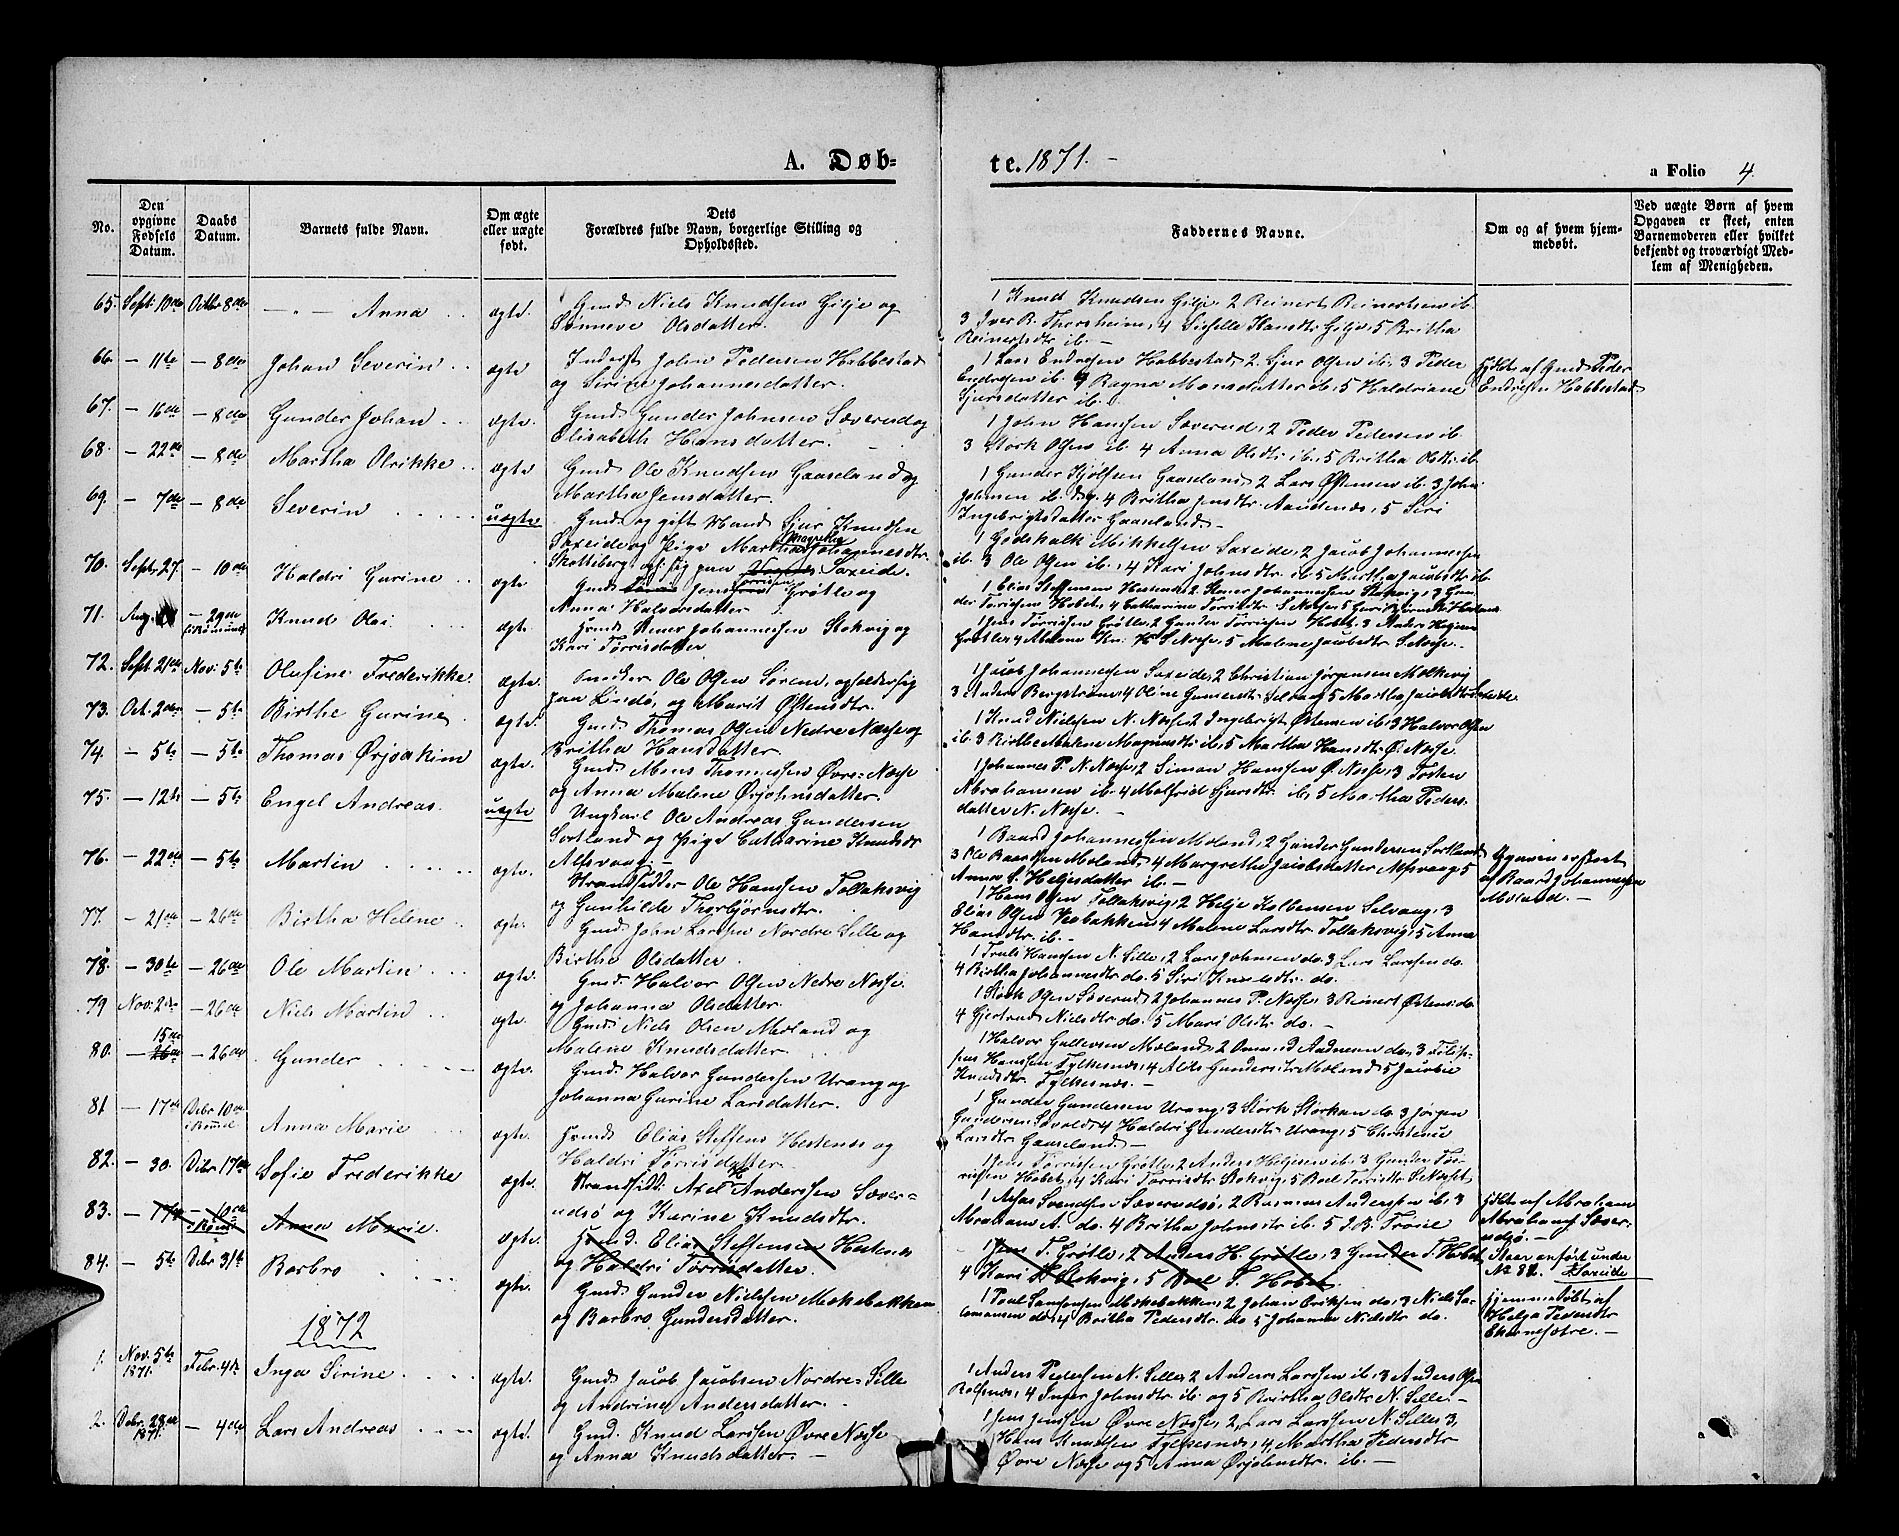 A. Døb-
te. 1871. -
a Folio 4.
No.
Den opgivne Fødsels Datum.
Daabs Datum.
Barnets fulde Navn.
Om ægte eller uægte født.
Dets
Forældres fulde Navn, borgerlige Stilling og
Opholdssted.
Faddernes Navne.
Om og af hvem hjem-
medøbt.
Ved uægte Børn af hvem
Opgaven er skeet, enten
Barnemoderen eller hvilket
bekjendt og troværdigt Med-
lem af Menigheden.
65. Sept. 10de Octbr 8de - " - Anna ægte. Gmd. Niels Knudsen Gilje og
Sønneve Olsdatter.
1 Knud Knudsen Gilje, 2 Reinert Reinertsen ib.
3 Iver R. Thorsheim, 4 Sicselle Hansdtr Gilje, 5 Britha
Reinertsdtr ib. -
66. - 11te - 8de Johan Severin ægte Inderst John Pedersen Habbestad
og Sirine Johannesdatter.
1 Lars Endresen Habbestad, 2 Sjur Olsen ib. 3 Peder
Endresen ib. 4 Ragna Monsdatter ib, 5 Haldriane
Sjursdatter ib.
af Gmd Peder
Endresen Habbestad
67. - 16de - 8de Gunder Johan ægte. Gmd. Gunder Johnsen Sæverud og
Elisabeth Hansdatter.
1 John Hansen Sæverud, 2 Peder Pedersen ib.
3 Størk Olsen ib 4 Anna Olsdtr ib, 5 Britha Olsdtr ib.
68. - 22de - 8de Martha Olrikke ægte. Gmd. Ole Knudsen Gaaseland og
Martha Jensdatter.
1 Gunder Kjølsen Gaaseland 2 Lars Østensen ib. 3 John
Johnsen ib. 4 Britha Jensdtr Aandenæs, 5 Siri
Ingebrigtsdatter Gaasland. -
69. - 7de - 8de Severin uægte. Gmd. og gift Mand Sjur Knudsen
Saxeide og Pige Martha Johannesdtr.
1 Godskalk Mikkelsen Saxeide, 2 Jacob Johannessen
ib. 3 Ole Olsen ib. 4 Kari Johnsdtr. ib. 5 Martha Jacobsdtr ib.
70. Septr 27. - 10de Haldri Gurine ægte Gmd. Jens Tørrisen Grøtle og
Anna Halvorsdatter
1 Elias Steffensen Hestenes
71. Aug. - 29de Knud Olai ægte. Johannessen Stokvig og
Kari Tørrisdatter
1 Jens Tørrissen Grøtle, 2 Gunder Tørrissen
72. Sept 21de Nov: 5te Olufine Frederikke. ægte. Snedker Ole Olsen Sørem, opholder sig
paa Lindø, og Marit Østensdtr.
1 Jacob Johannessen Saxeide, 2 Christian Jørgensen Mælkevig
3 Anders Bergstrøm, 4 Oline Gunnersdtr Selvaag, 5 Martha Jacobsdtr Saxeide.
73. Oct. 2den - 5te Birthe Gurine ægte. Gmd. Thomas Olsen Nedre Næsse og
Britha Hansdatter.
1 Knud Nielsen N. Næsse, 2 Ingebrigt Østensen ib. 3 Halvor Olsen
ib. 3 Birthe Malene Magnusdtr ib. 5 Martha Hansdtr Ø. Næsse.
74. - 5te - 5te Thomas Ørjoakim ægte. Gmd. Mons Thomassen Øvre-Næsse
og Anna Malene Ørjohnsdatter.
1 Johannes P. N. Næsse, 2 Simon Hanssen Ø. Næsse, 3 Tosten
Abrahamsen ib. 4 Malfrid Sjursdtr. ib. 5 Martha Peders-
datter N. Næsse. -
75. - 12te - 5te Engel Andreas uægte Ungkarl Ole Andreas Gundersen
Sortland og Pige Catharine Knudsdtr
Alsvaag. -
1 Baard Johannessen Moland, 2 Gunder Gundersen Sortland
3 Ole Baardsen Moland, 4 Margrethe Jacobsdatter Alsvaag, 5
Anna S. Heljesdatter ib. -
Opgaven er skeet
af Baard Johannessen
Moland. -
76. - 22de - 5te Martin ægte. Strandsidder Ole Hanssen Tollaksvig
og Gunhilde Thorbjørnsdtr.
1 Hans Olsen Tollaksvig, 2 Helje Kolbensen Selvaag, 3
Elias Olsen Vesbakken, 4 Malene Larsdtr Tollaksvig, 5 Anna
Hansdtr. ib. -
77. - 21de - 26de Birtha Helene ægte. Gmd. John Larsen Nordre Sille og
Birthe Olsdatter.
1 Truls Hansen N. Sille, 2 Lars Johnsen do. 3 Lars Larsen do.
4 Birtha Johannesdtr do. 5 Siri Knudsdtr. do.
78. - 30te - 26de Ole Martin ægte. Gmd. Halvor Olsen Nedre Næsse.
og Johanna Olsdatter.
1 Størk Olsen Sæverud, 2 Johannes P. Næsse, 3 Reinert Østens. do.
4 Gjertrud Nielsdtr do. 5 Mari Olsdtr do. -
79 Nov: 2den - 26de Niels Martin ægte. Gmd. Niels Olsen Moland og
Malene Knudsdatter.
1 Halvor Gullevsen Moland, 2 Omund Aadnesen do. 3 Filip-
pus Hanssen Fylkesnæs, 4 Alis Gundersdtr Moland 5 Jacobie
Knudsdtr Fylkesnæs. -
80. - 15de 26de - 26de Gunder ægte. Gmd. Halvor Gundersen Urang og
Johanna Gurine Larsdatter.
1 Gunder Gundersen Urang, 3 Størk Størksen do. 3 Jørgen
Gundersen Løvold, 4 Haldri Gundersdtr Urang, 5 Christense
Larsdtr Gaaseland. -
81 - 17de Debr 10de Anna Marie ægte. Elias Steffens Hestenes og
Haldri Tørrisdatter.
1 Jens Tørrissen Grøtle, 2 Anders Heljesen ib. 3 Gunder Tør-
rissen Hobet, 4 Kari Tørrisdtr Stokvig,
82. - 30. Debr 17de Sofie Frederikke ægte. Strandsid: Axel H Anderssen Sæver-
udsø og Karine Knudsdtr.
1 Aslak Svendsen Sæverudsø, 2 Rasmus Andersen ib. 3
Abraham A. do. 4 Britha Johnsdtr ib. 5 I. B. Troie
af Abraham
Abrahams. Sæver-
udsø. -
83. - 17de - 10de Anna Marie. ægte. Elias Steffensen Hestenes
og Haldri Tørrisdatter.
1 Jens T. Grøtle, 2 Anders H. Grøtle, 3 Gunder T. Hobet,
4 Kari Stokvig, 5 T. Hobet.
Staar anført under
No 81. Saxeide
84. - 5te Debr 31te Barbro ægte. Gmd. Gunder Nielssen Mækebakken
og Barbro Gundersdatter.
1 Poul Samsonsen Mækebakken, 2 Johan Eriksen do, 3 Niels Sa-
lomonsen do, 4 Britha Pedersdtr. do 5 Johanna Nielsdtr do.
hjemmedøbt af
Helga Pedersdtr
-
1872
1. Nov. 5te 1871. Febr. 4de Inga Sirine ægte. Gmd. Jacob Jacobsen Nordre-Sille
og Andrine Andersdatter. -
1 Anders Pedersen N. Sille, 2 Anders Larsen ib. 3 Anders Olsen
Rolfsnæs, 4 Inger Johnsdtr. ib. og 5 Birtha Olsdtr N. Sille. -
2. Debr. 28de 1871. - 4de Lars Andreas ægte. Gmd. Knud Larssen Øvre Næsse
og Anna Knudsdatter. -
1 Jens Jenssen Øvre Næsse, 2, Lars Larssen N. Sille, 3,
Hans Knudsen Fylkesnæs, 4, Martha Pedersdtr
Øvre Næsse og 5 Anna Ørjohnsdtr. ib. -